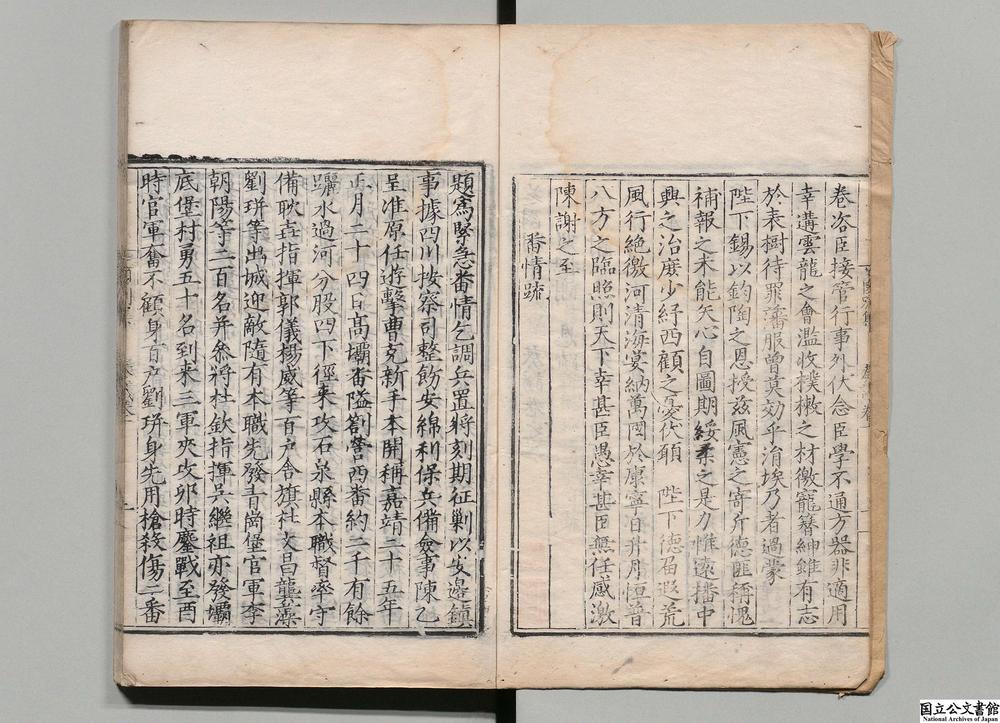 卷咨臣接管行事外伏念臣學不通方器非適用
幸遘雲龍之會濫收樸樕之材徼寵簪紳雖有志
於表樹待罪藩服曾莫効乎涓埃乃者過蒙
陛下錫以鈞陶之恩授兹風憲之寄斤德匪稱愧
補報之未能矢心自圖期綏柔之是力惟遂播中
興之治庻少紓西顧之憂伏願　陛下德召遐荒
風行絶徼河清海宴納萬國於康寧日升月恒普
八方之臨照則天下幸甚臣愚幸甚臣無任感激
陳謝之至
番情疏
題爲緊急番情乞調兵置將刻期征剿以安邊鎮
事據四川按察司整飭安綿利保兵備僉事陳乙
呈准原任遊擊曹克新手本開稱嘉靖二十五年
正月二十四日髙壩番隘劄營西番約二千有餘
躧水過河分股四下徑來攻石泉縣本職督率守
備耿垚指揮郭儀楊威等百戶舎旗杜文昌龔藻
劉琲等出城迎敵隨有本職先發青崗堡官軍李
朝陽等二百名并叅將杜欽指揮吳繼祖亦發壩
底堡村勇五十名到來三軍夾攻卯時鏖戰至酉
時官軍奮不顧身百戶劉琲身先用槍殺傷二番
国立公文書館
National Archives of Japan